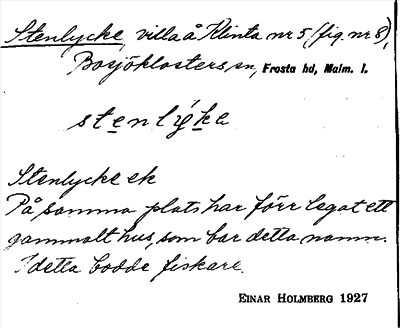 Stenlycke, villa å Klinta nr 5 (fig. nr 8),
Bosjöklosters sn, Frosta hd, Malm. l.
stenlýke
Stenlycke ek
På samma plats har förr legat ett
gammalt hus, som bar detta namn.
I detta bodde fiskare.
EINAR HOLMBERG 1927